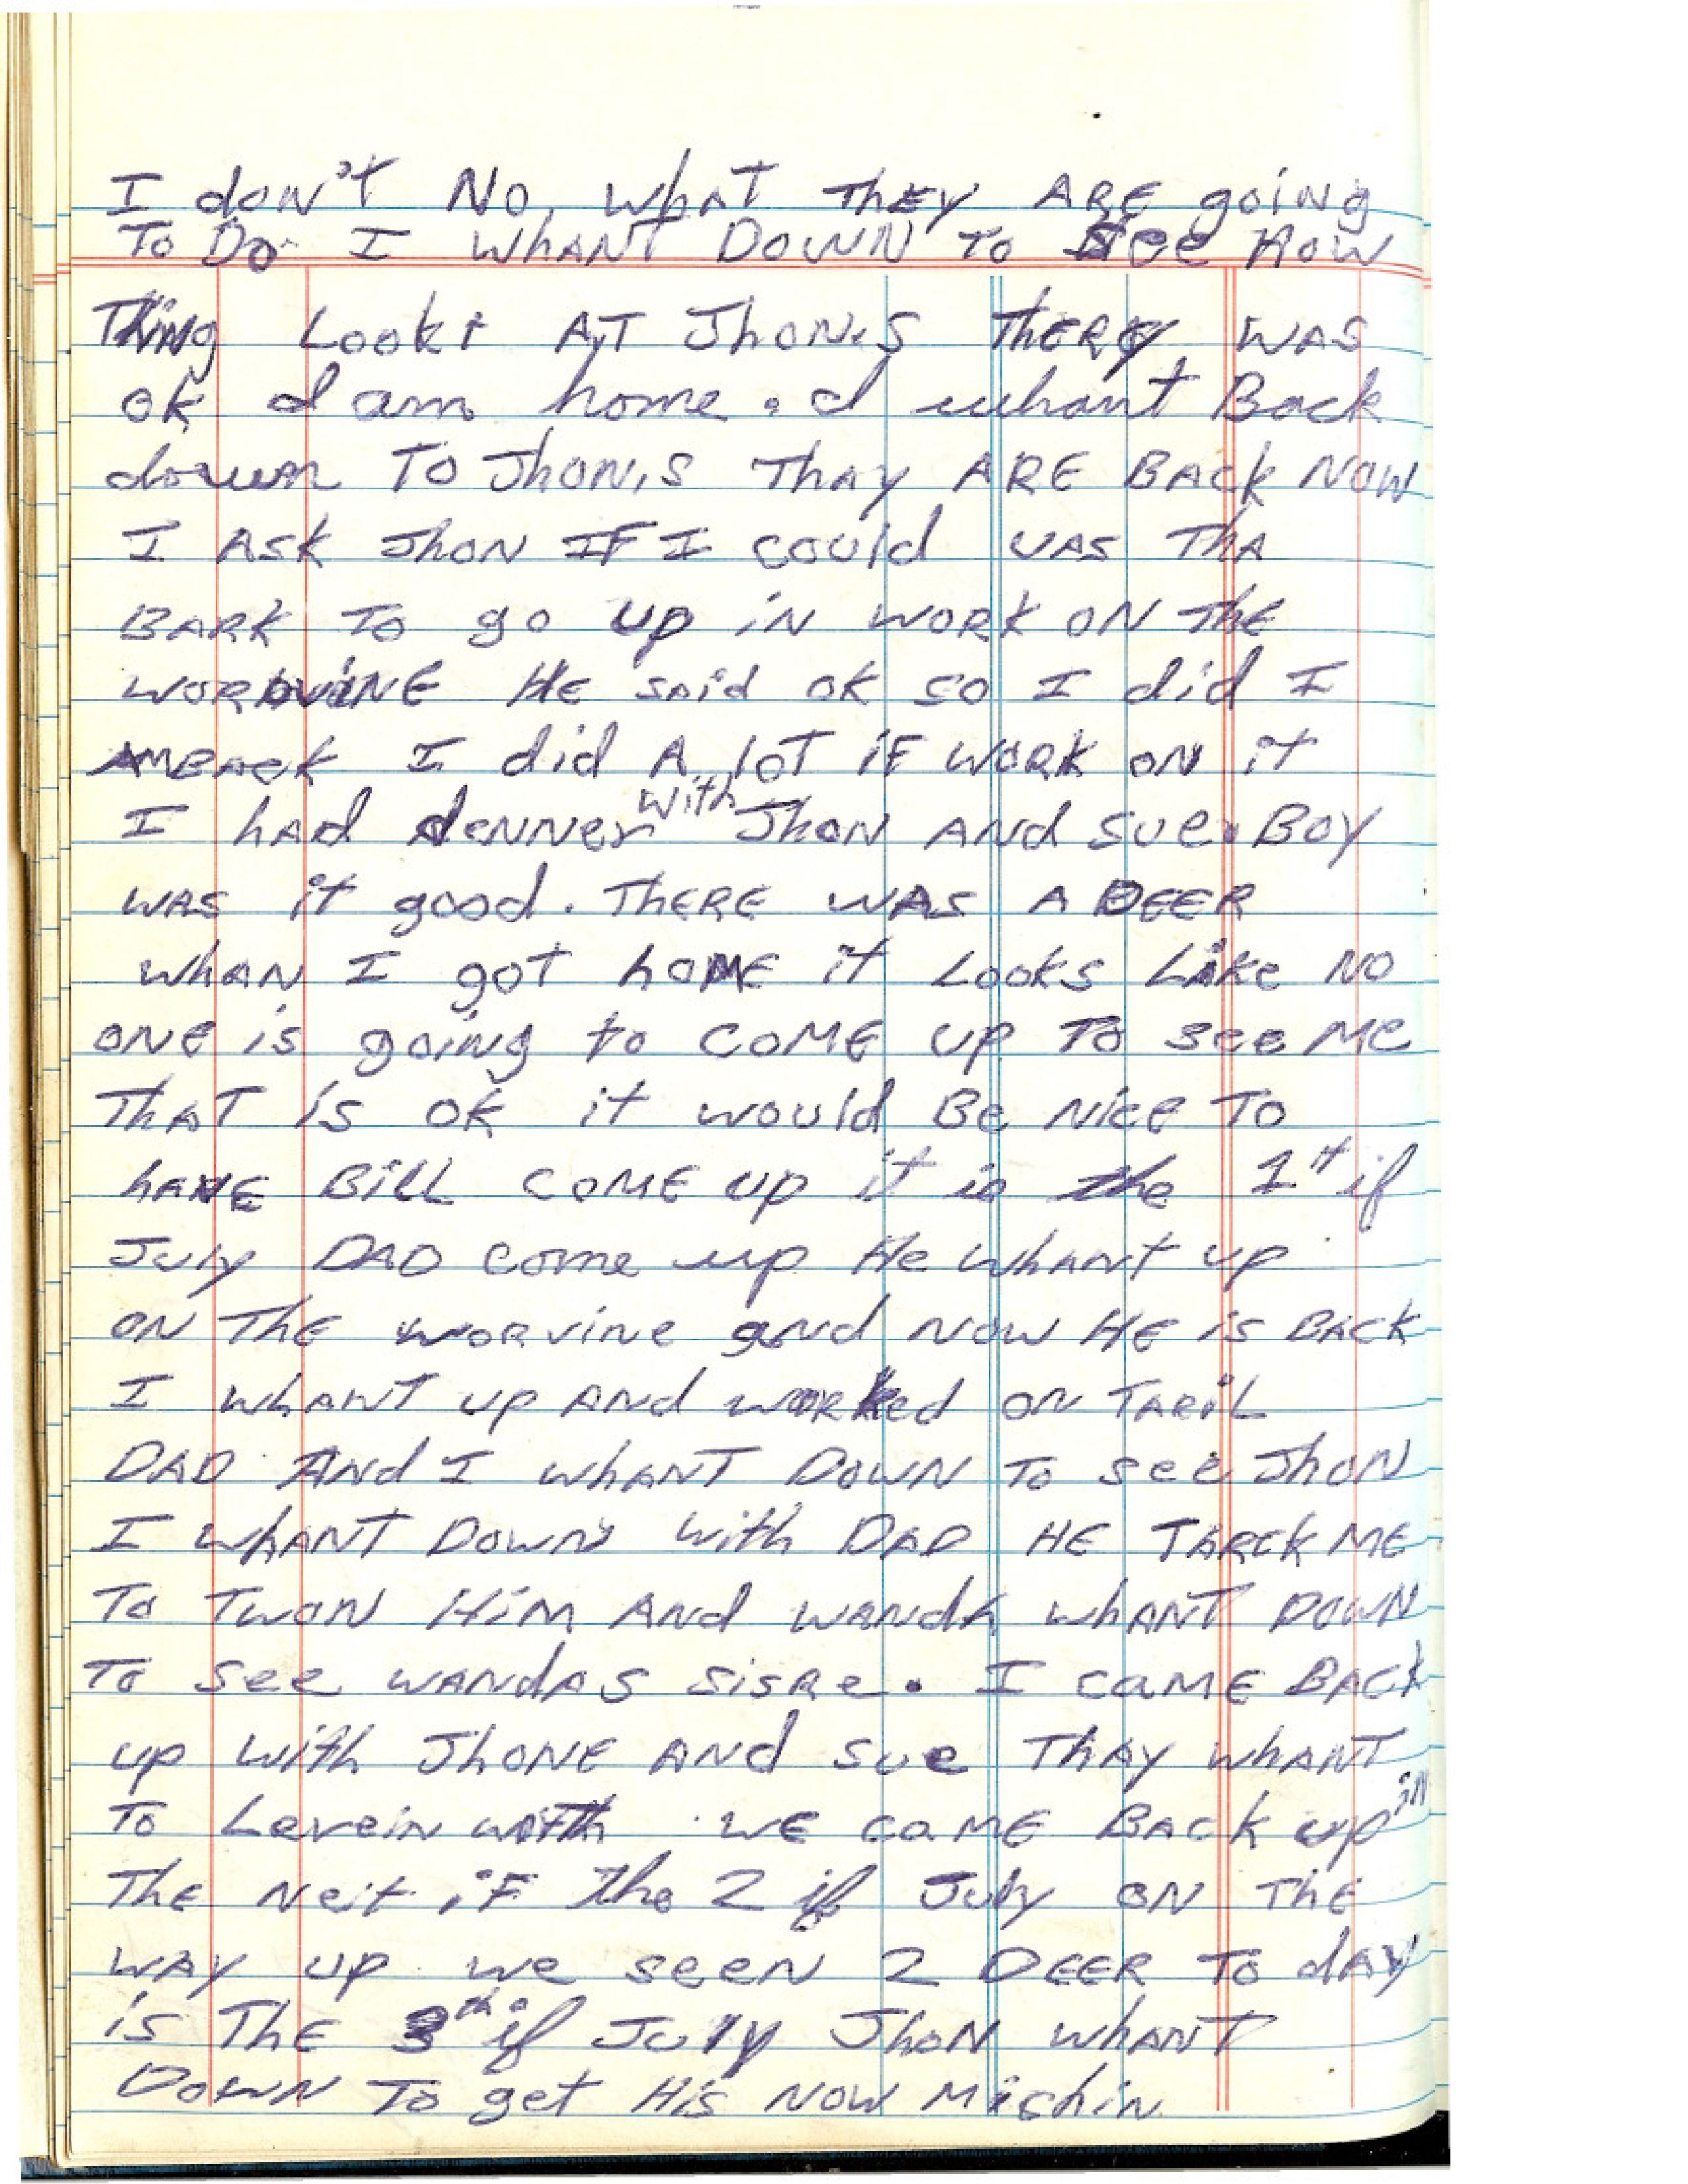 I don't No, what They ARE going
To Do I WHANT DOWN TO see How
Thing Lookt AT JhON,S ThERE WAS
ok I am home. I whant Back
down TO JhON,S ThAy ARE BACk NOW
I ASk JhON IF I could UAS ThA
BARK TO go up iN WORK ON The
WORVINE HE SAid OK SO I did I
AM BACK I did A LOT iF WORK ON it
I hAd denner with JhON ANd Sue. BOY
WAS it good. ThERE WAS A DEER
WhAN I gOT hOME it LOOKS Like NO
ONE is going to COME UP TO see Me
ThAT is OK it would Be NiCE TO
hAVE BiLL COME UP it is the 1st if
July DAD come up He WhANT UP
ON The WORVine and NOW HE is BACK
I WhANT UP ANd WORked ON TARiL
DAD ANd I WhANT DOWN TO See JhON
I WhANT DOWN With DAD HE TARCK ME
TO TWON HiM ANd WANdA WhANT DOWN
To See WANdAS SiSRe. I CaME BACK
up With JhONE ANd Sue ThAY WhANT
TO LeveiN WiTh WE CaME BACK up in
The Neit iF the 2 if July ON ThE
WAY UP we seeN 2 DEER TO dAY
is ThE 3th if JULY JhON WhANT
DOWN To get His NOW Mishin